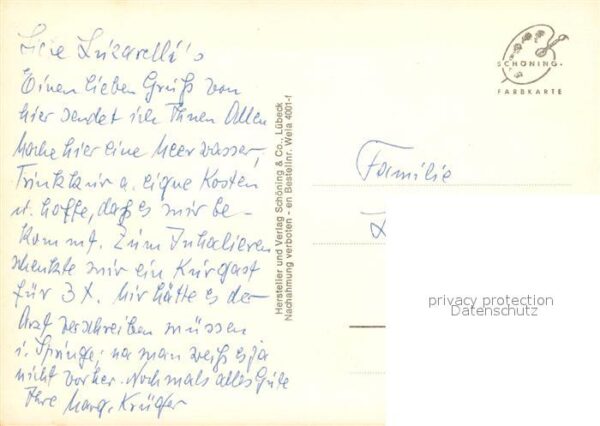 Liebe Luzarelli's
Einen lieben Gruß von
hier sendet ich Ihnen Allen
Mache hier eine Meerwasser,
Trinkkur a. eigne Kosten
u. hoffe, daß es mir be-
kommt. Zum Inhalieren
schenkte mir ein Kurgast
für 3 X. Mir hätte es der
Arzt verschreiben müssen
i. Springe; na man weiß es ja
nicht vorher. Nochmals alles Gute
Ihre Marg. Krüger
Hersteller und Verlag Schöning & Co., Lübeck
Nachahmung verboten - en Bestellnr. Wela 4001-f
SCHÖNING-
FARBKARTE
Familie
privacy protection
Datenschutz